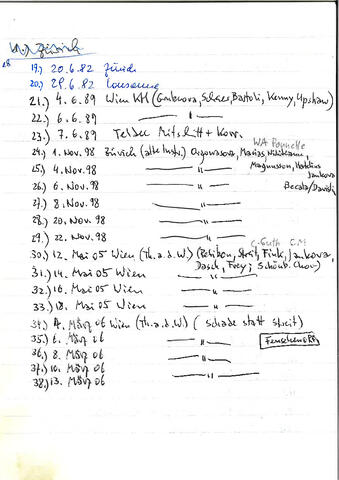 18
19.) 20.6.82 Zürich
20.) 29.6.82 Lausanne
21.) 4. 6. 89 Wien KH (Gruberova, Scharr, Bartoli, Kenny, Upshaw)
22.) 6. 6. 89 —— " ——
23.) 7. 6. 89 Teldec Mitschnitt + Korr.
WA Ponnelle
24.) 1. Nov. 98 Zürich (alte Instr.) Orgonasova, Macias, Nikiteanu,
25.) 4. Nov. 98 —— " —— Magnusson, Hartelius
26.) 6. Nov. 98 —— " —— Jankova
Beczala/Davislim
27.) 8. Nov. 98 —— " ——
28.) 20. Nov. 98 —— " ——
29.) 22. Nov. 98 —— " ——
C. Guth C.M
30.) 12. Mai 05 Wien (Th. a. d. W.) (Petibon, Streit, Fink, Jankova,
31.) 14. Mai 05 Wien Dasch, Frey; Schönb. Chor)
32.) 16. Mai 05 Wien —— " ——
33.) 18. Mai 05 Wien —— " ——
34.) 4. März 06 Wien (Th. a. d. W.) (Schade statt Streit)
35.) 6. März 06 —— " —— Fernsehen ORF
36.) 8. März 06 —— " ——
37.) 10. März 06 —— " ——
38.) 13. März 06 —— " ——